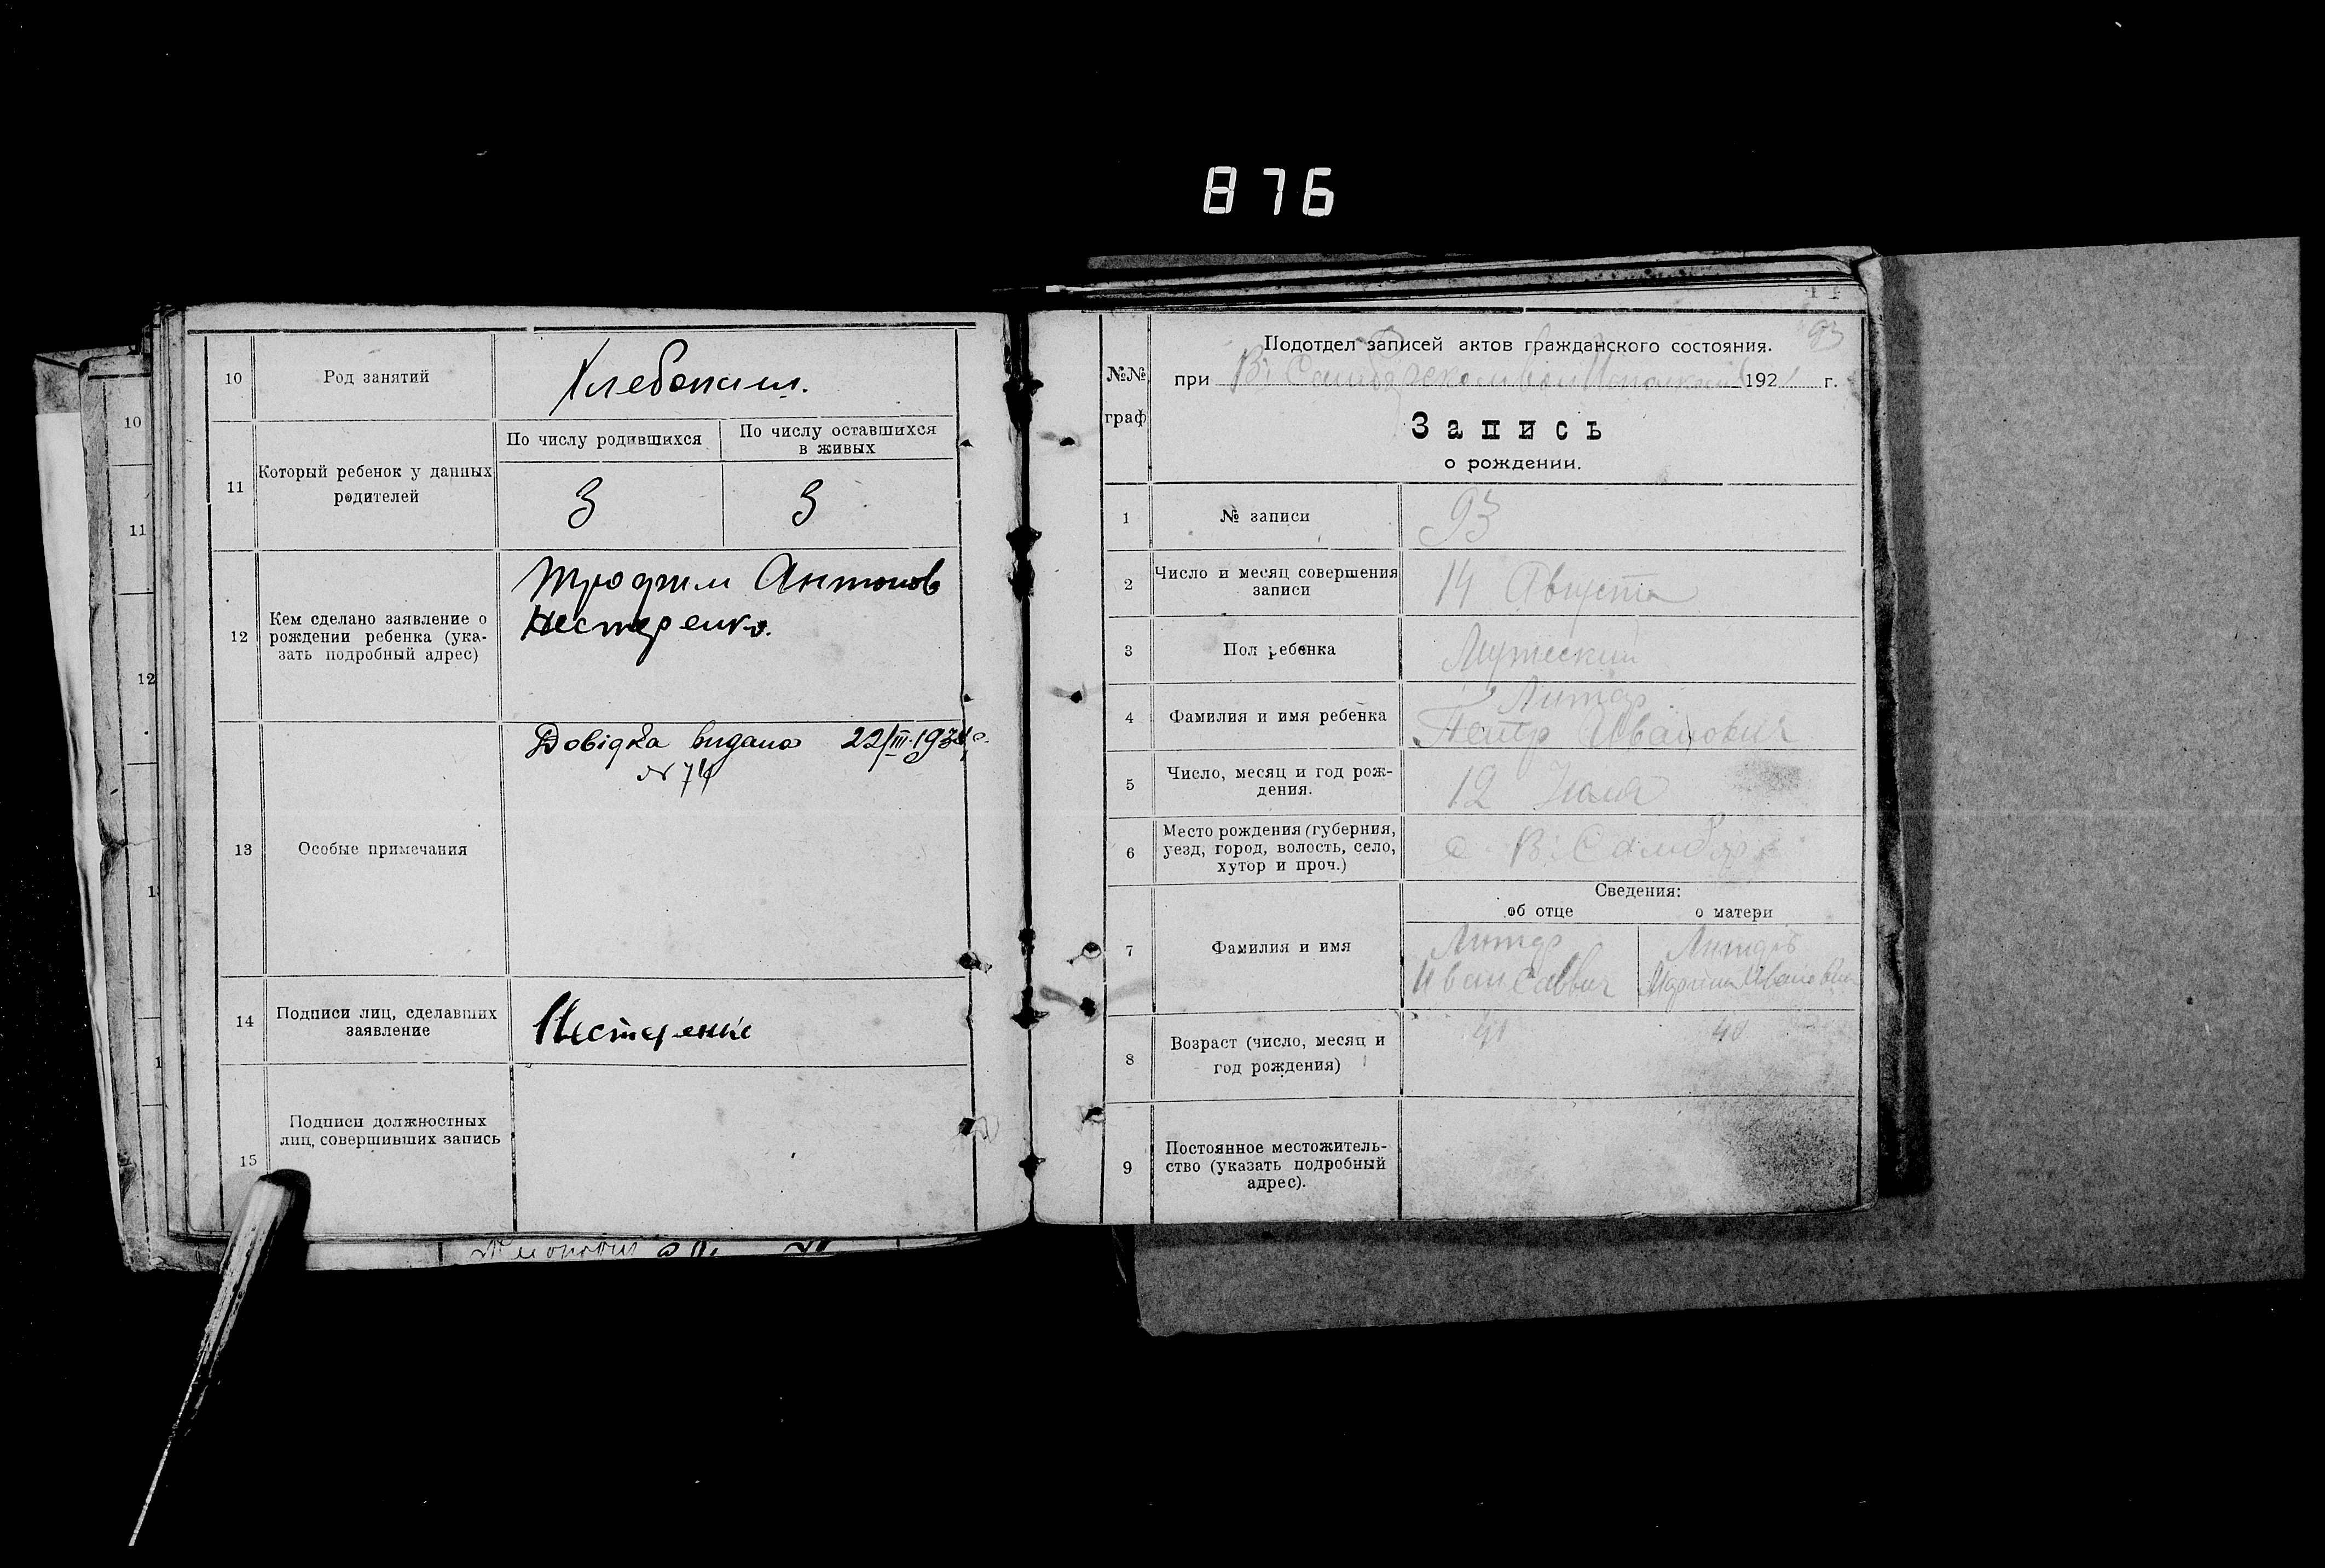 876
10
Род занятий
Хлебопаш.
11
Который ребенок у данных
родителей
По числу родившихся
По числу оставшихся
в живых
3
3
12
Кем сделано заявление о
рождении ребенка (ука-
зать подробный адрес)
Трофим Антонов
Нестеренко.
13
Особые примечания
Довідка видана 22/III-193
№ 74
14
Подписи лиц, сделавших
заявление
Нестеренко
15
Подписи должностных
лиц, совершивших запись
10
11
12
№№
граф
93
Подотдел записей актов гражданского состояния.
при В. Самборском Вол 1921 г.
Запись
о рождении.
1
№ записи
93
2
Число и месяц совершения
записи
14 Августа
3
Пол ребенка
Мужеский
4
Фамилия и имя ребенка
Литар
Петр Иванович
5
Число, месяц и год рож-
дения.
12 Июля
6
Место рождения (губерния,
уезд, город, волость, село,
хутор и проч.)
с. В. Самбор
Сведения:
об отце
о матери
7
Фамилия и имя
Литар
Иван Саввич
Литар
Ивановна
8
Возраст (число, месяц и
год рождения)
41
40
9
Постоянное местожитель-
ство (указать подробный
адрес).